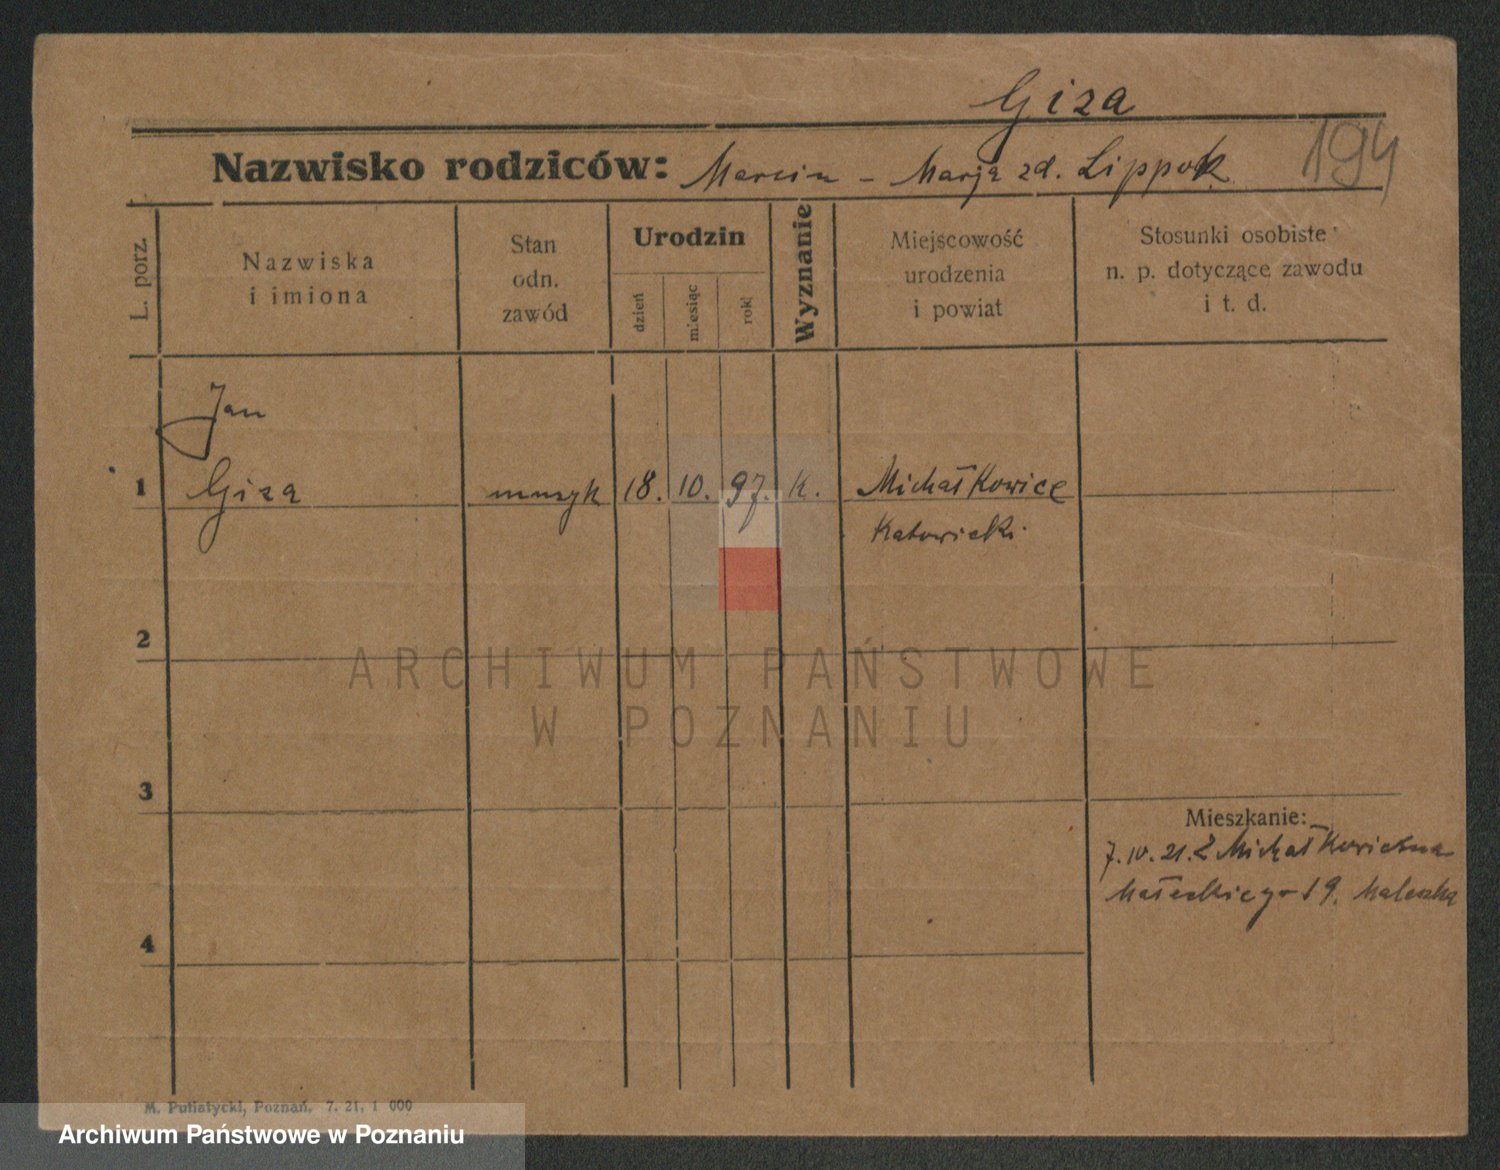 Giza
194
Nazwisko rodziców: Marcin - Marja zd. Lippok
L. porz.
Nazwiska
i imiona
Stan
odn.
zawód
Urodzin
dzień
miesiąc
rok
Wyznanie
Miejscowość
urodzenia
i powiat
Stosunki osobiste
n. p. dotyczące zawodu
i t. d.
Jan
1 Giza muzyk 18. 10. 97. k. Michałkowice
Katowicki
2
ARCHIWUM PAŃSTWOWE
W POZNANIU
3
Mieszkanie:
7. 10. 21. Z Michałkowic
Małeckiego 19.
4
M. Putiatycki, Poznań, 7. 21, 1 000
Archiwum Państwowe w Poznaniu